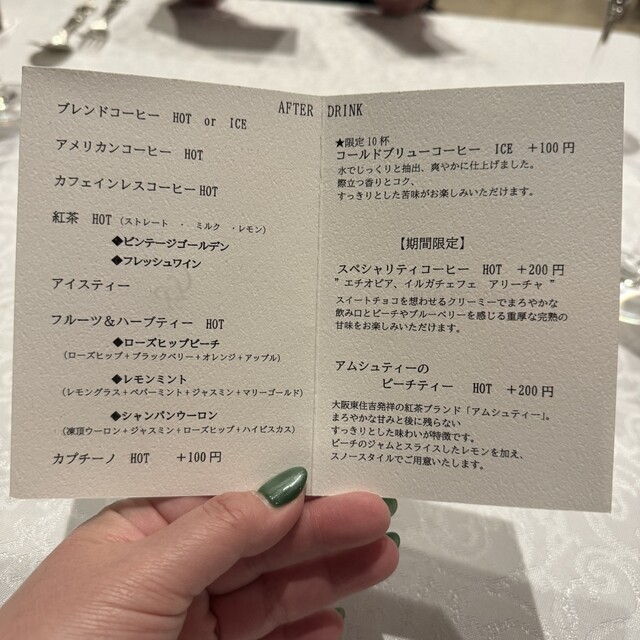 AFTER DRINK
ブレンドコーヒー HOT or ICE
アメリカンコーヒー HOT
カフェインレスコーヒー HOT
紅茶 HOT (ストレート ・ ミルク ・レモン)
◆ビンテージゴールデン
◆フレッシュワイン
アイスティー
フルーツ＆ハーブティー HOT
◆ローズヒップピーチ
(ローズヒップ+ブラックベリー+オレンジ+アップル)
◆レモンミント
(レモングラス+ペパーミント+ジャスミン+マリーゴールド)
◆シャンパンウーロン
(凍頂ウーロン+ジャスミン+ローズヒップ+ハイビスカス)
カプチーノ HOT +100円
★限定10杯
コールドブリューコーヒー ICE +100円
水でじっくりと抽出、爽やかに仕上げました。
際立つ香りとコク、
すっきりとした苦味がお楽しみいただけます。
【期間限定】
スペシャリティコーヒー HOT +200円
" エチオピア、イルガチェフェ アリーチャ "
スイートチョコを想わせるクリーミーでまろやかな
飲み口とピーチやブルーベリーを感じる重厚な完熟の
甘味をお楽しみいただけます。
アムシュティーの
ピーチティー HOT +200円
大阪東住吉発祥の紅茶ブランド「アムシュティー」。
まろやかな甘みと後に残らない
すっきりとした味わいが特徴です。
ピーチのジャムとスライスしたレモンを加え、
スノースタイルでご用意いたします。